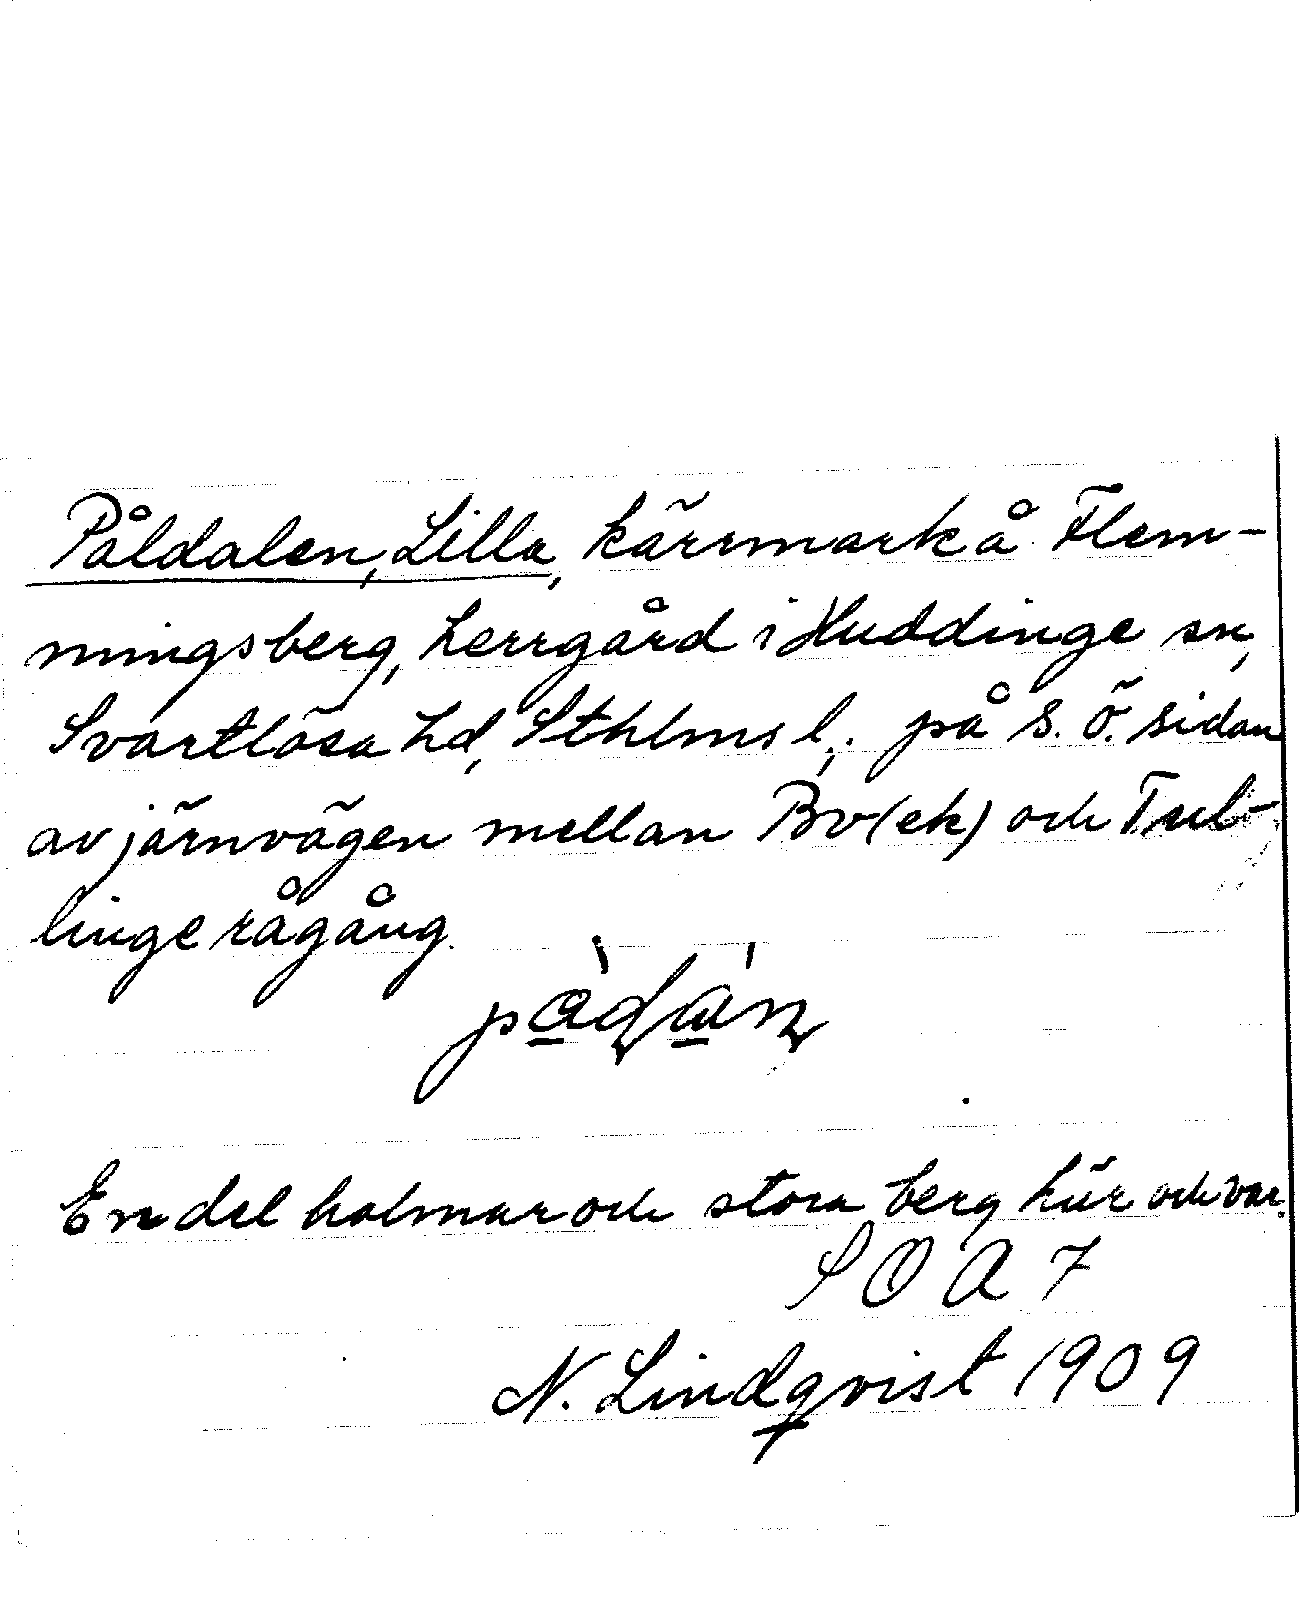 Påldalen, Lilla, kärrmark å Flem-
mingsberg, herrgård i Huddinge sn,
Svartlösa hd, Sthlms l., på S.Ö. sidan
av järnvägen mellan Bv(ek) och Tul-
linge rågång.
En del holmar och stora berg här och var.
SOA 7
N. Lindqvist 1909